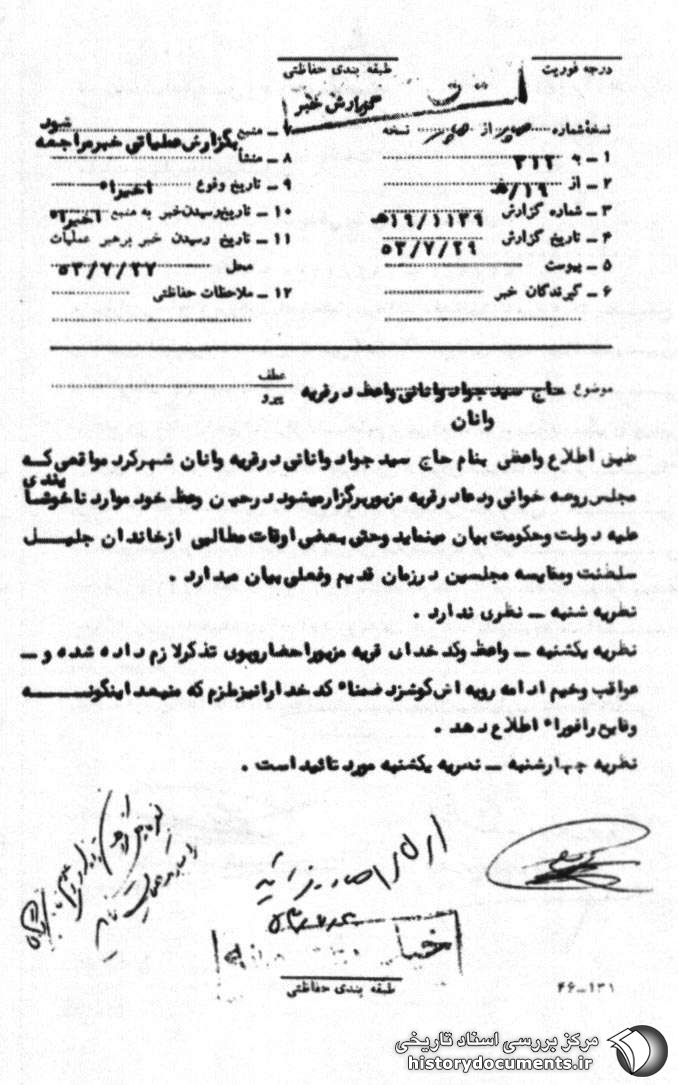 درجه فوریت
طبقه بندی حفاظتی
گزارش خبر
نسخهٔ شماره از نسخه
۱ – به ۳۱۲
۲ – از ۱۹/هـ
۳ – شماره گزارش ۱۹/۱۱۳۹هـ
۴ – تاریخ گزارش ۵۳/۷/۲۹
۵ – پیوست
۶ – گیرندگان خبر
۷ – منبع بگزارش عملیاتی خبر مراجعه شود
۸ – منشأ
۹ – تاریخ وقوع اخیراً
۱۰ – تاریخ رسیدن خبر به منبع اخیراً
۱۱ – تاریخ رسیدن خبر برهبر عملیات
محل ۵۳/۷/۲۷
۱۲ – ملاحظات حفاظتی
موضوع حاج سید جواد وانانی واعظ در قریه
وانان
عطف
پیرو
طبق اطلاع واعظی بنام حاج سید جواد وانانی در قریه وانان شهرکرد مواقعی که
مجلس روضه خوانی و دعا در قریه مزبور برگزار میشود در حین وعظ خود موارد ناخوشایندی
علیه دولت و حکومت بیان مینماید و حتی بعضی اوقات مطالبی از خاندان جلیل
سلطنت و مقایسه مجلسین در زمان قدیم و فعلی بیان میدارد .
نظریه شنبه – نظری ندارد .
نظریه یکشنبه – واعظ و کدخدای قریه مزبور احضار و بوی تذکر لازم داده شده و –
عواقب وخیم ادامه رویه اش گوشزد ضمناً کدخدا را نیز ملزم که منبعد اینگونه
وقایع را فوراً اطلاع دهد .
نظریه چهارشنبه – نظریه یکشنبه مورد تائید است .
طبقه بندی حفاظتی
۴۶–۱۳۱
مرکز بررسی اسناد تاریخی
historydocuments.ir